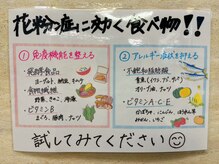 花粉症に効く食べ物!!
① 免疫機能を整える
発酵食品
ヨーグルト、納豆、キムチ
食物繊維
野菜、きのこ、海藻
ビタミンD
② アレルギー症状を抑える
不飽和脂肪酸
青魚
オリーブ油
ビタミンACE
かぼちゃ、にんじん、ほうれん草
試してみてください